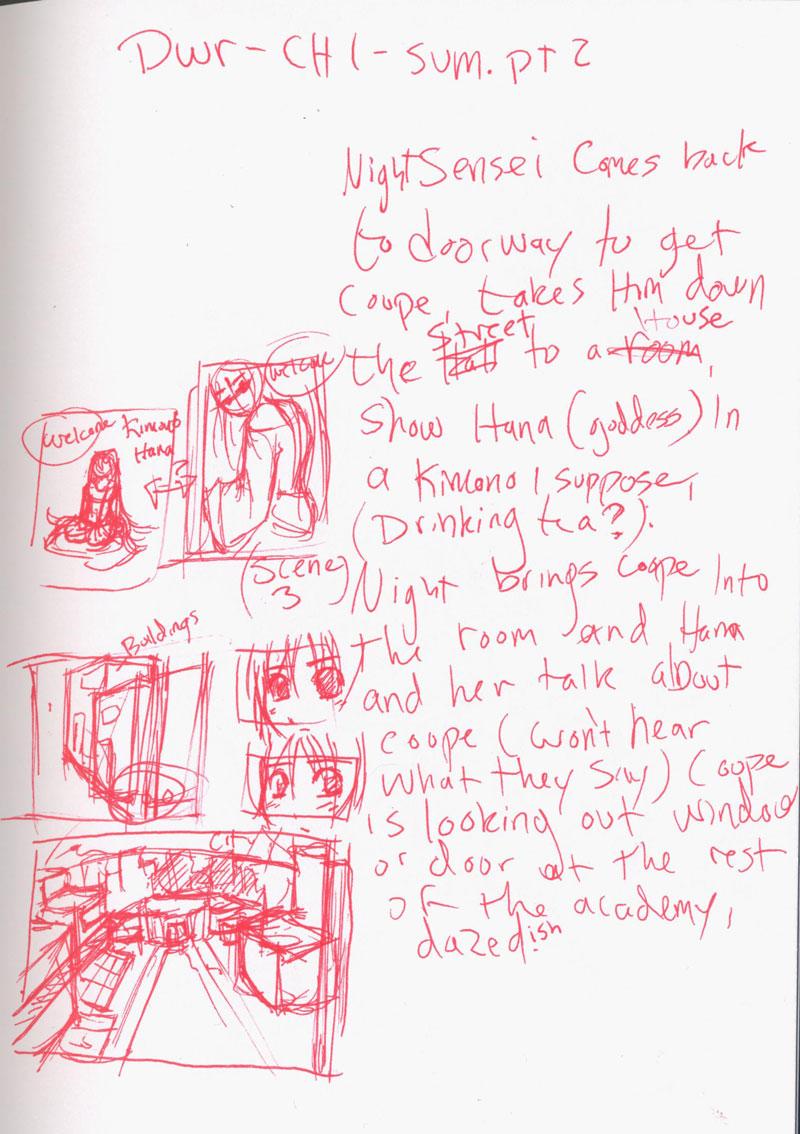 Dwr - CH 1 - sum. pt 2
NightSensei Comes back
to doorway to get
coope, takes Him down
the street to a room House,
show Hana (goddess) In
a Kimono I suppose,
(Drinking tea?).
(Scene 3)
Night brings coope Into
the room and Hana
and her talk about
coope (won't hear
what they say) Coope
is looking out window
or door at the rest
of the academy,
dazedish
welcome
welcome
Kimono
Hana
?
Buildings
City